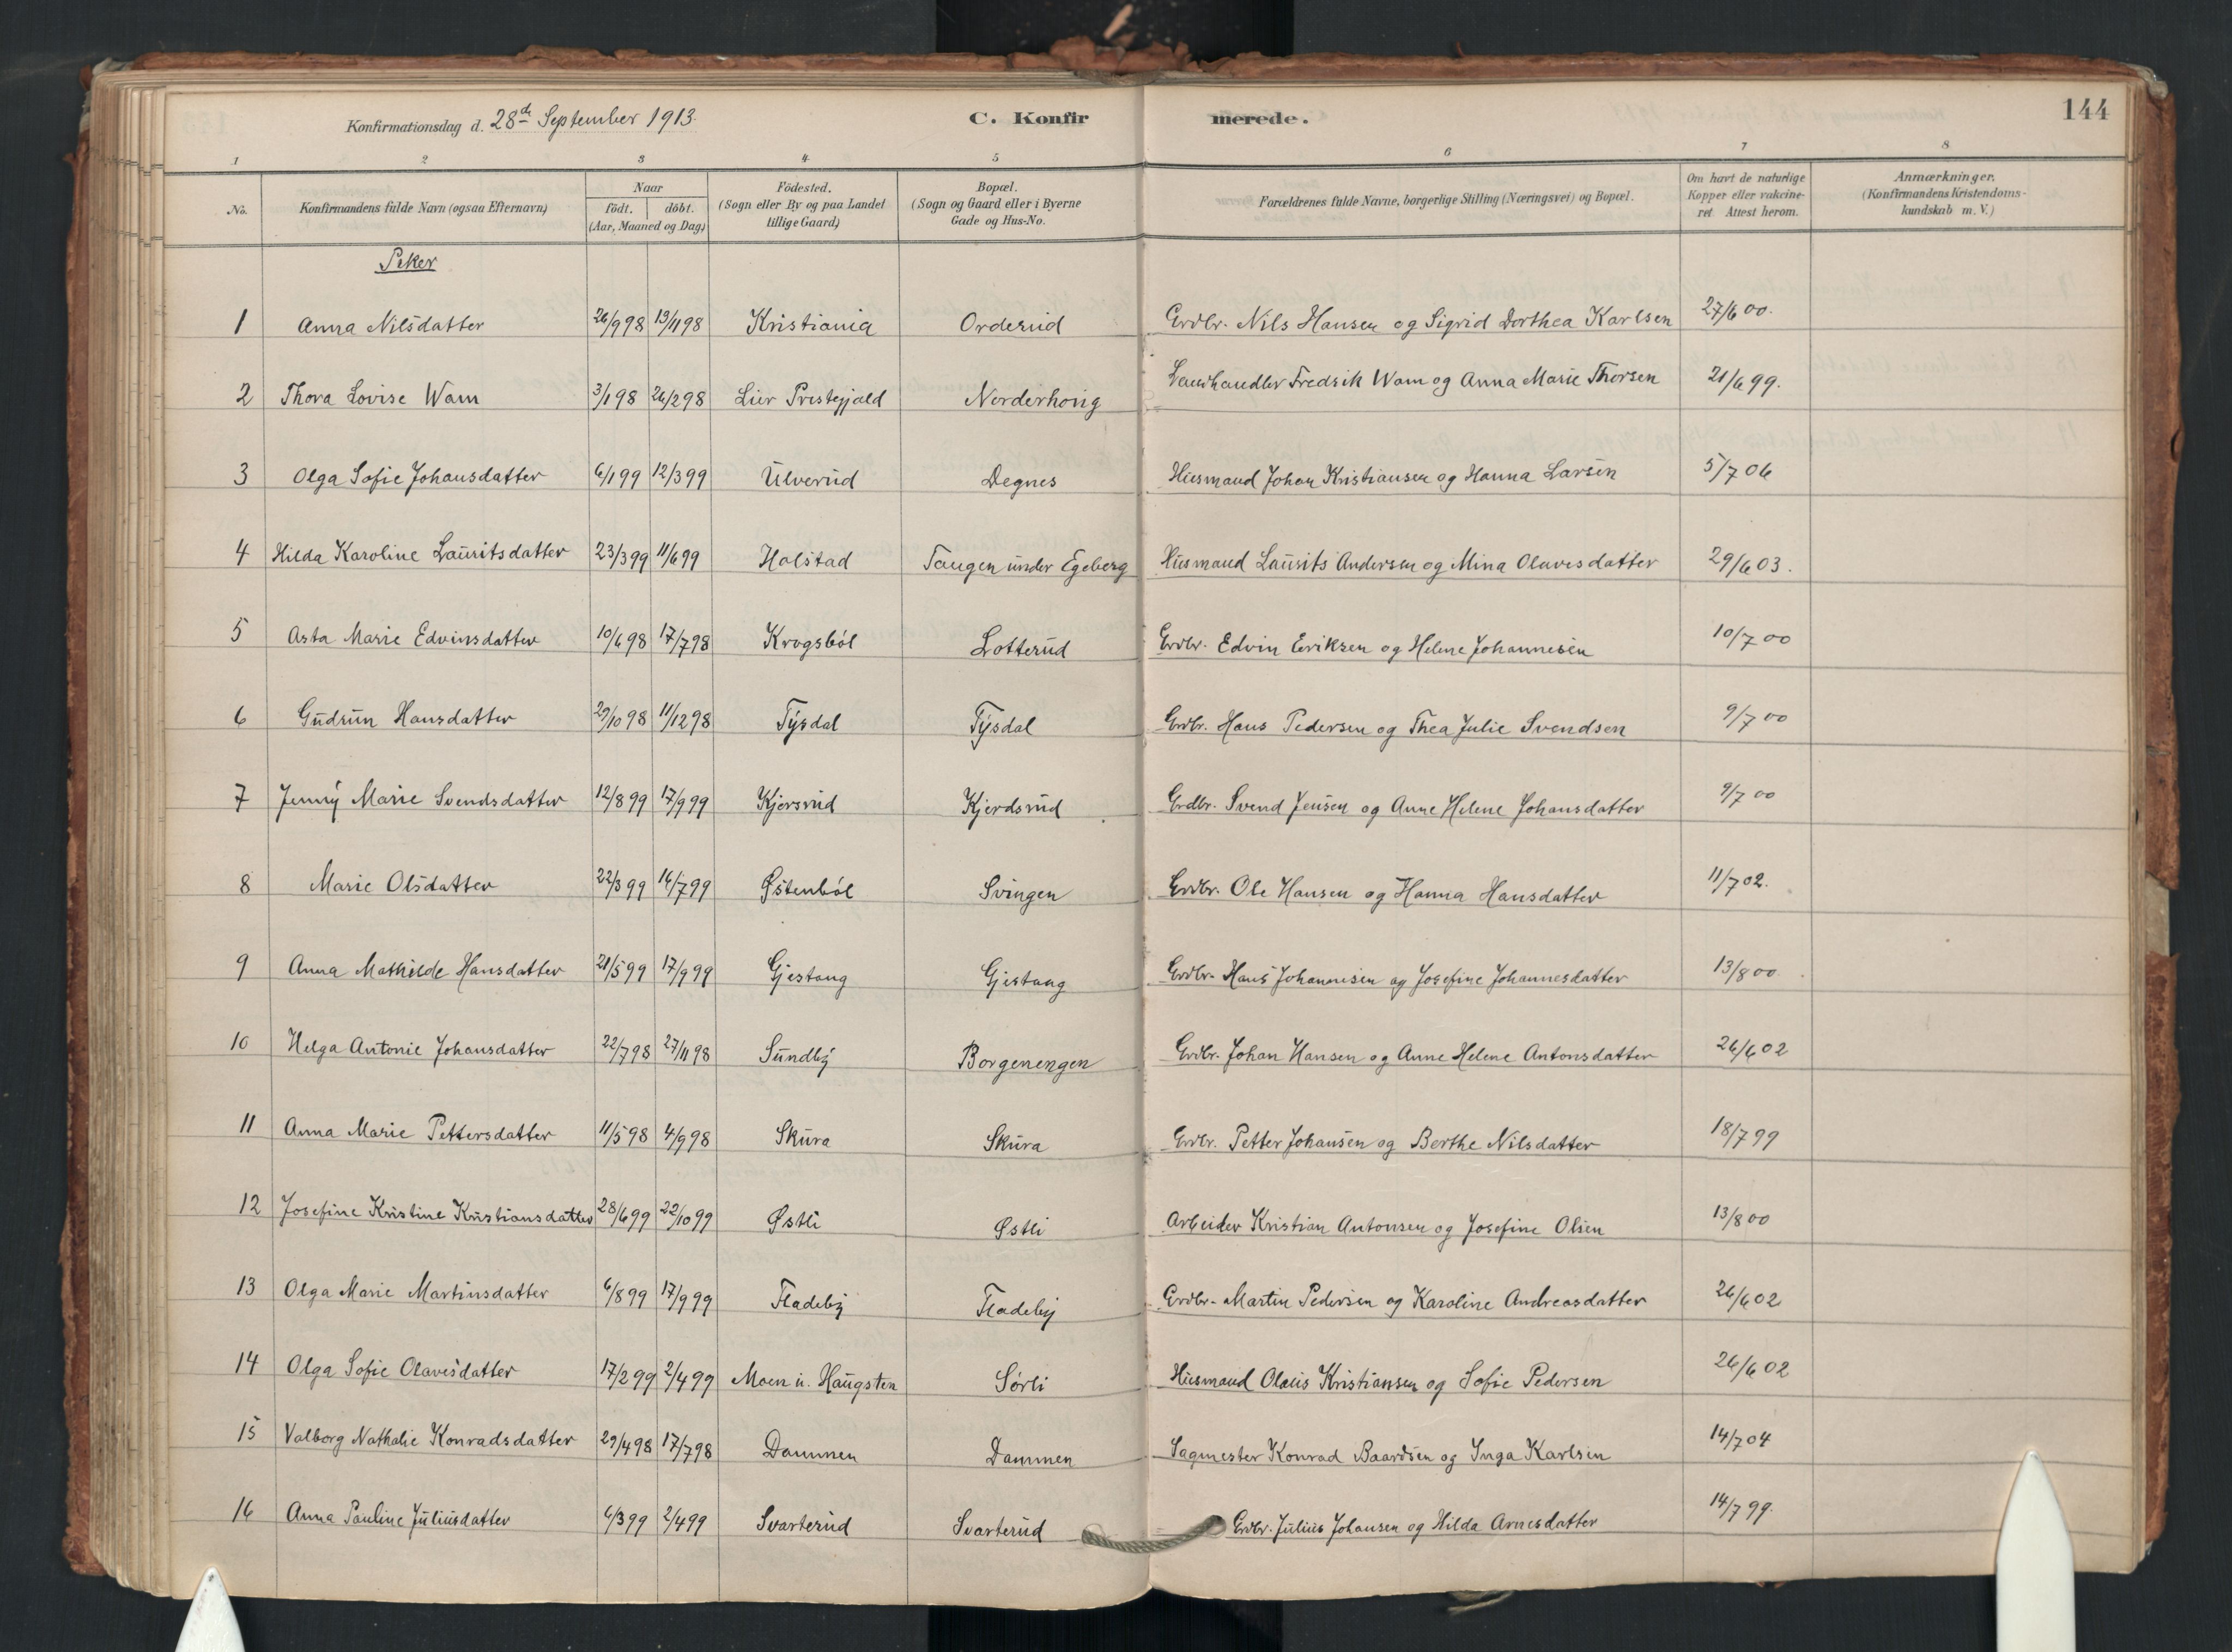 Konfirmationsdag d. 28de September 1913.
C. Konfirmerede.
144
1 2 3 4 5 6 7 8
No.
Konfirmandens fulde Navn (ogsaa Efternavn)
Naar
födt. döbt.
(Aar, Maaned og Dag)
Födested.
(Sogn eller By og paa Landet
tillige Gaard)
Bopæl.
(Sogn og Gaard eller i Byerne
Gade og Hus-No.
Forældrenes fulde Navne, borgerlige Stilling (Næringsvei) og Bopæl.
Om havt de naturlige
Kopper eller vakcine-
ret Attest herom.
Anmærkninger.
(Konfirmandens Kristendoms-
kundskab m. V.)
Piker
1 Anna Nilsdatter 26/9 98 13/11 98 Kristiania Orderud Grdbr. Nils Hansen og Sigrid Dorthea Karlsen 27/6 00.
2 Thora Lovise Wam 3/1 98 26/2 98 Lier Prestegjæld Norderhovig Landhandler Fredrik Wam og Anna Marie Thorsen 21/6 99.
3 Olga Sofie Johansdatter 6/1 99 12/3 99 Ulverud Degnes Husmand Johan Kristiansen og Hanna Larsen 5/7 06
4 Hilda Karoline Lauritsdatter 23/3 99 11/6 99 Holstad Tangen under Egeberg Husmand Laurits Andersen og Mina Olavesdatter 29/6 03.
5 Asta Marie Edvinsdatter 10/6 98 17/7 98 Krogsböl Lotterud Grdbr. Edvin Eriksen og Helene Johannesen 10/7 00
6 Gudrun Hansdatter 29/10 98 11/12 98 Tysdal Tysdal Grdbr. Hans Pedersen og Thea Julie Svendsen 9/7 00
7 Jenny Marie Svendsdatter 12/8 99 17/9 99 Kjersrud Kjerdsrud Grdbr. Svend Jensen og Anne Helene Johansdatter 9/7 00
8 Marie Olsdatter 22/3 99 16/7 99 Østenböl Svingen Grdbr. Ole Hansen og Hanna Hansdatter 11/7 02.
9 Anna Mathilde Hansdatter 21/5 99 17/9 99 Gjestang Gjestang Grdbr. Hans Johannesen og Josefine Johannesdatter 13/8 00.
10 Helga Antonie Johansdatter 22/7 98 27/11 98 Sundby Borgenengen Grdbr. Johan Hansen og Anne Helene Antonsdatter 26/6 02
11 Anna Marie Pettersdatter 11/5 98 4/9 98 Skura Skura Grdbr. Petter Johansen og Berthe Nilsdatter 18/7 99
12 Josefine Kristine Kristiansdatter 28/6 99 22/10 99 Østli Østli Arbeider Kristian Antonsen og Josefine Olsen 13/8 00
13 Olga Marie Martinsdatter 6/8 99 17/9 99 Fladeby Fladeby Grdbr. Martin Pedersen og Karoline Andreasdatter 26/6 02
14 Olga Sofie Olavesdatter 17/2 99 2/4 99 Moen u. Haugsten Sörli Husmand Olaus Kristiansen og Sofie Pedersen 26/6 02
15 Valborg Nathalie Konradsdatter 29/4 98 17/7 98 Dammen Dammen Sagmester Konrad Baardsen og Inga Karlsen 14/7 04
16 Anna Pauline Juliusdatter 6/3 99 2/4 99 Svarterud Svarterud Grdbr. Julius Johansen og Hilda Arnesdatter 14/7 99.